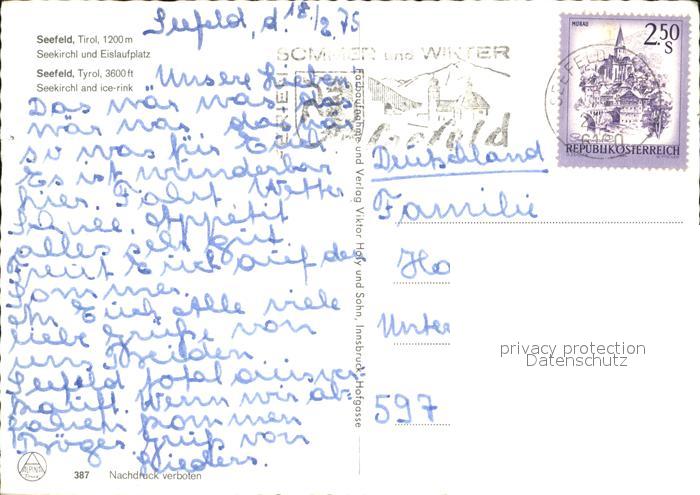 Seefeld, d. 18./2. 75
Seefeld, Tirol, 1200 m
Seekirchl und Eislaufplatz
Seefeld, Tyrol, 3600 ft
Seekirchl and ice-rink
SOMMER und WINTER
Seefeld
2.50 S
MURAU
REPUBLIK ÖSTERREICH
Unsere Lieben
Das wär was das
wär was das wär
so was für Euch
Es ist wunderbar
hier. Fahrt Wetter
Schnee, Appetit
alles sehr gut
Freut Euch auf den
Sommer.
Euch Alle viele
liebe Grüße von
uns Beiden.
Seefeld total ausver-
kauft. Wenn wir ab-
kommen
Gruß von
Farbaufnahme und Verlag Viktor Hofy und Sohn, Innsbruck, Hofgasse
Deutschland
Familie
Ho
Unter
597
privacy protection
Datenschutz
ALPINA
387 Nachdruck verboten